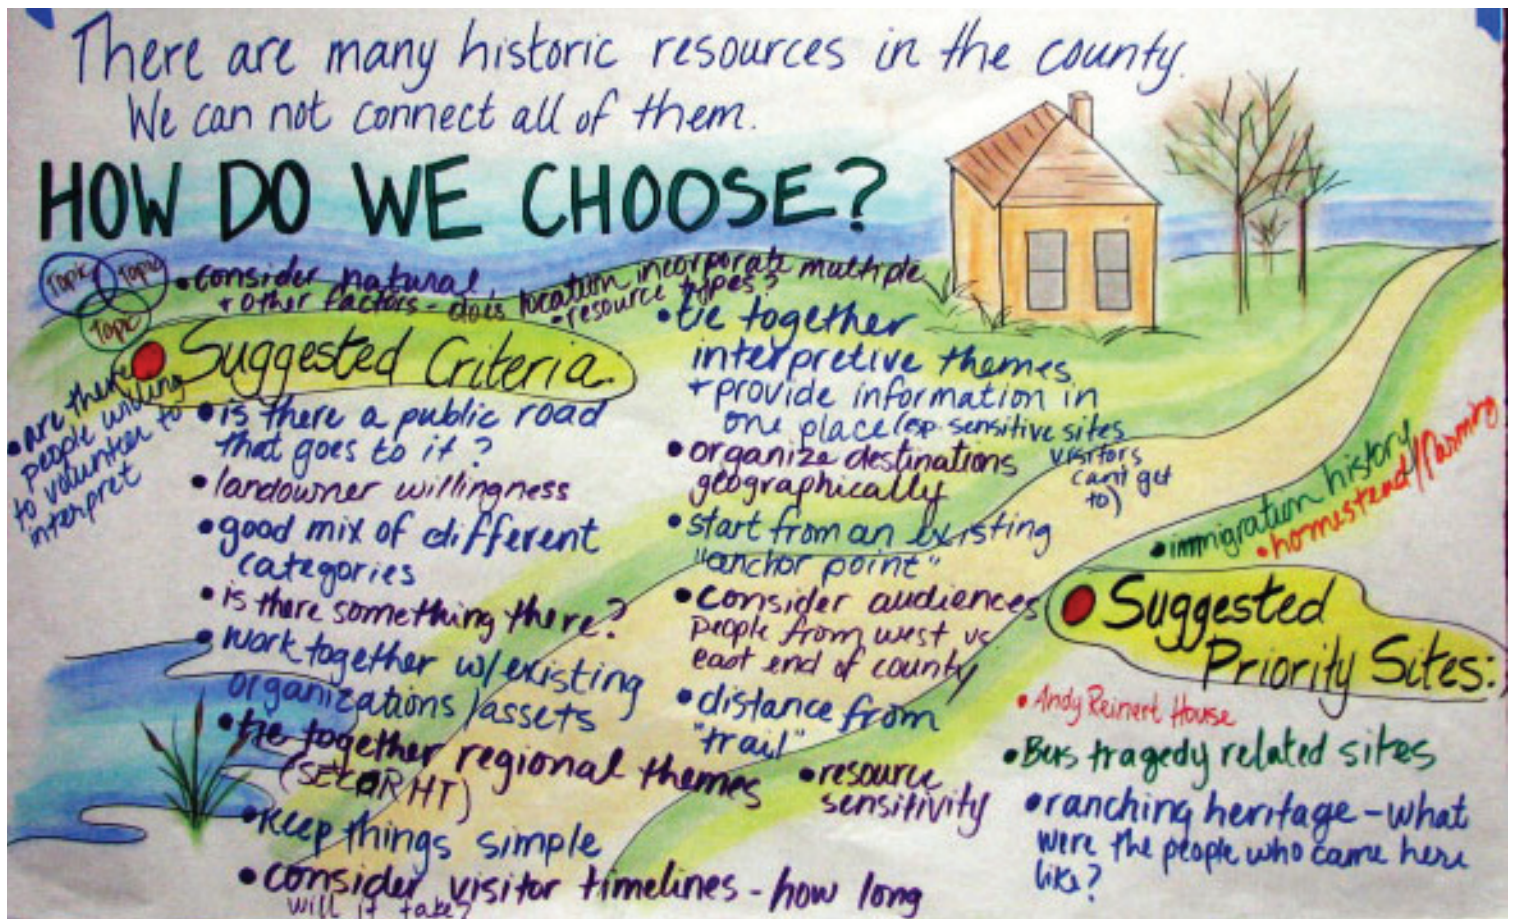 There are many historic resources in the county.
We can not connect all of them.
HOW DO WE CHOOSE?
Topic Topic
Topic
• consider natural
+ other factors - does location incorporate multiple
• resource types?
Suggested Criteria.
• are there
people willing
to volunteer to
to
interpret
• is there a public road
that goes to it?
• landowner willingness
• good mix of different
categories
• is there something there?
• work together w/existing
organizations/assets
• tie together regional themes
(SECORHT)
• keep things simple
• consider visitor timelines - how long
will it take?
• tie together
interpretive themes
+ provide information in
one place (esp. sensitive sites
visitors
can't get
to)
• organize destinations
geographically
• start from an existing
"anchor point"
• consider audiences
people from west vs
east end of county
• distance from
"trail"
• resource
sensitivity
• immigration history
• homestead/farming
Suggested
Priority Sites:
• Andy Reinert House
• tragedy related sites
• ranching heritage - what
were the people who came here
like?